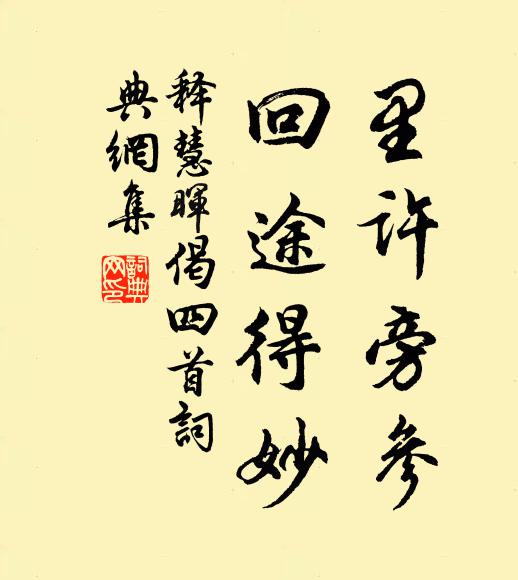 里许旁參
回途得妙
释慧暉偈四首詞
典網集
詞典
网印